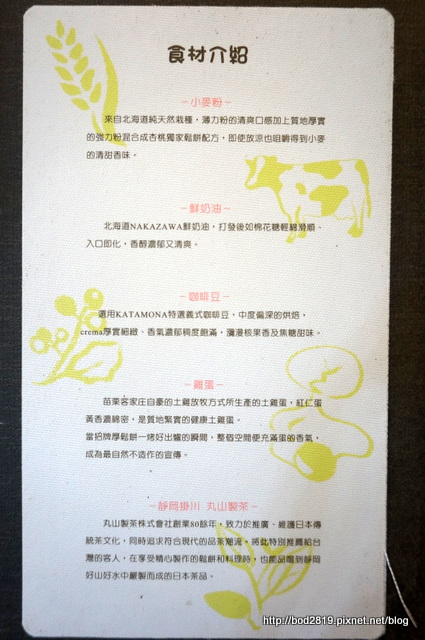 食材介紹
－小麥粉－
來自北海道純天然栽種，薄力粉的清爽口感加上質地厚實
的強力粉混合成杏桃獨家鬆餅配方，即使放涼也咀嚼得到小麥
的清甜香味。
－鮮奶油－
北海道NAKAZAWA鮮奶油，打發後如棉花糖輕綿滑順、
入口即化，香醇濃郁又清爽。
－咖啡豆－
選用KATAMONA特選義式咖啡豆，中度偏深的烘焙，
crema厚實細緻、香氣濃郁稠度飽滿，瀰漫核果香及焦糖甜味。
－雞蛋－
苗栗客家庄自豪的土雞放牧方式所生產的土雞蛋，紅仁蛋
黃香濃綿密，是質地緊實的健康土雞蛋。
當招牌厚鬆餅一烤好出爐的瞬間，整個空間便充滿蛋的香氣，
成為最自然不造作的宣傳。
－靜岡掛川 丸山製茶－
丸山製茶株式會社創業80餘年，致力於推廣、維護日本傳
統茶文化，同時追求符合現代的品茶潮流。將此特別推薦給台
灣的客人，在享受精心製作的鬆餅和料理時，也能品嚐到靜岡
好山好水中嚴製而成的日本茶品。
http://bod2819.pixnet.net/blog